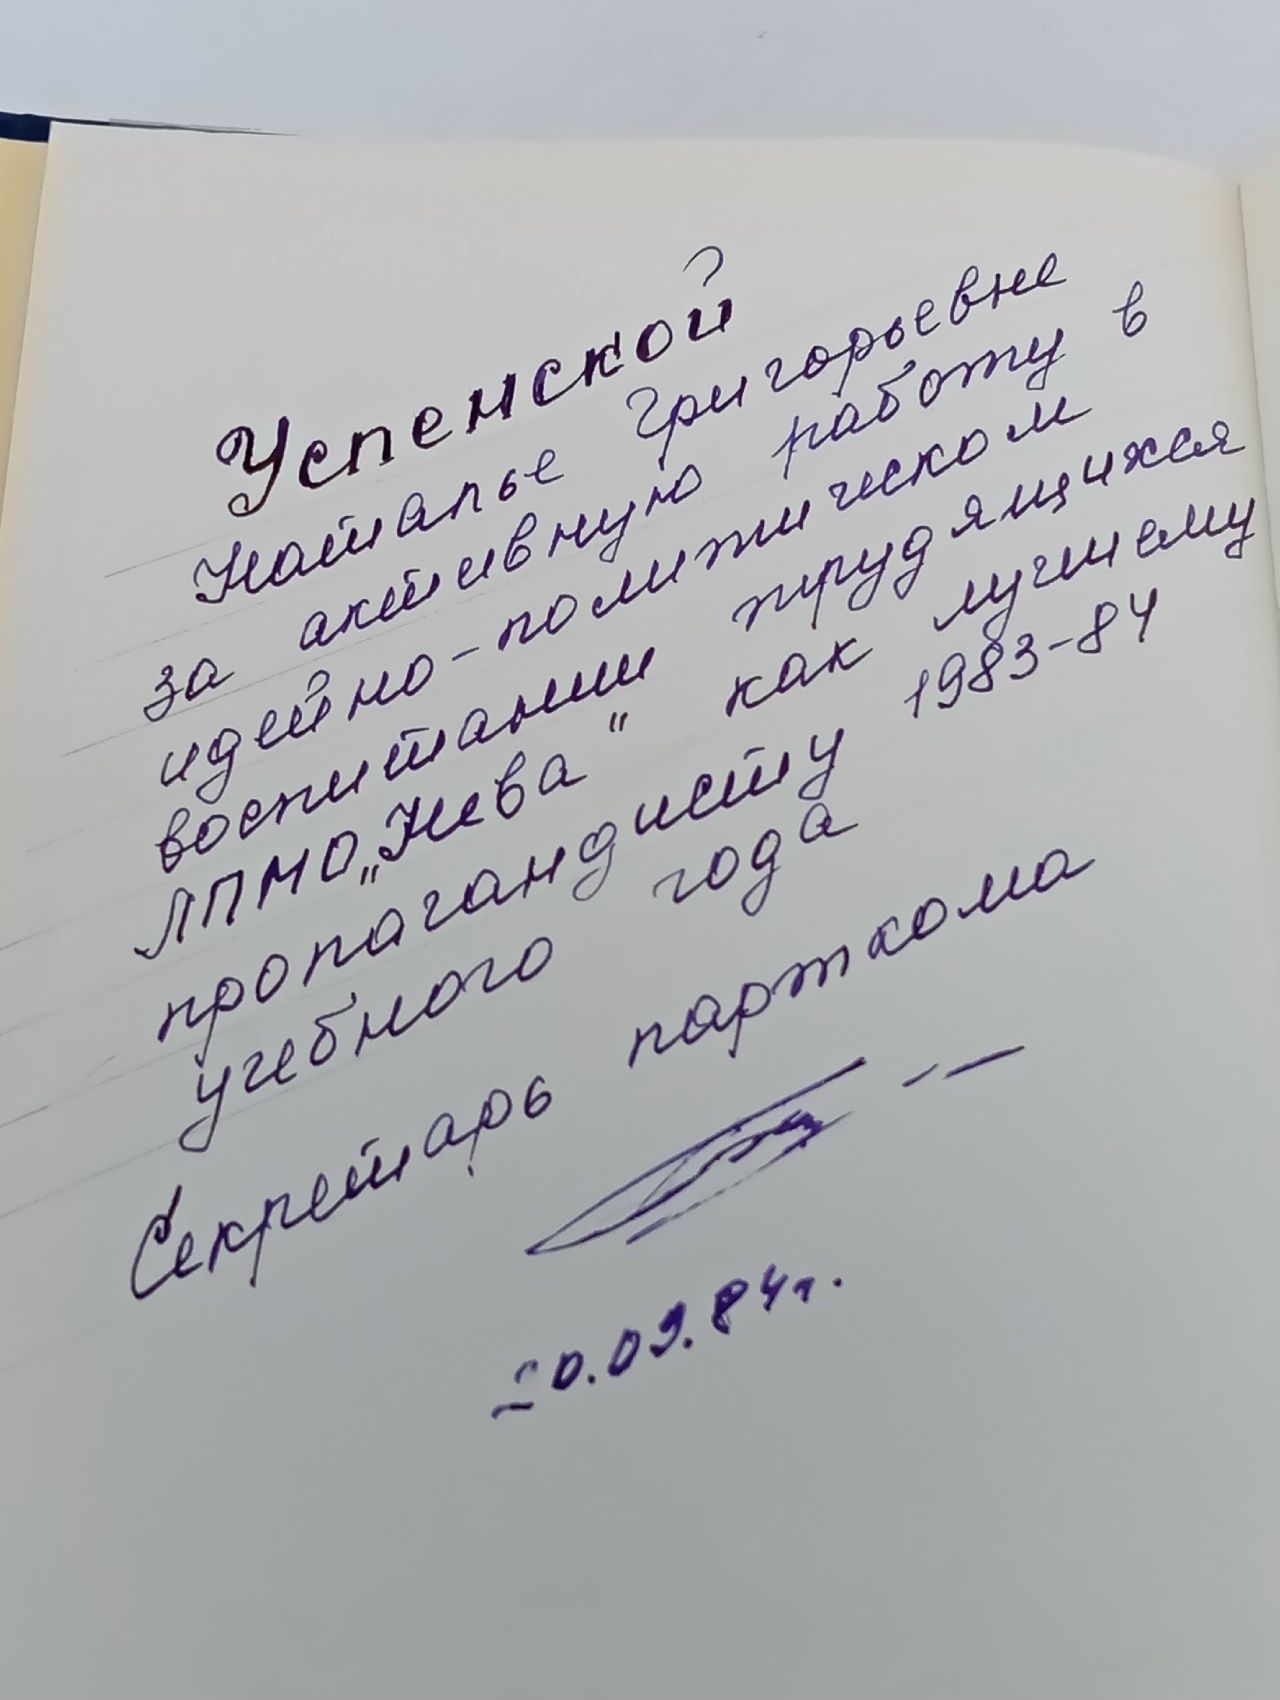 Успенской
Наталье Григорьевне
за активную работу в
идейно-политическом
воспитании трудящихся
ЛПМО „Нева" как лучшему
пропагандисту 1983-84
учебного года
Секретарь парткома
20.09.84г.